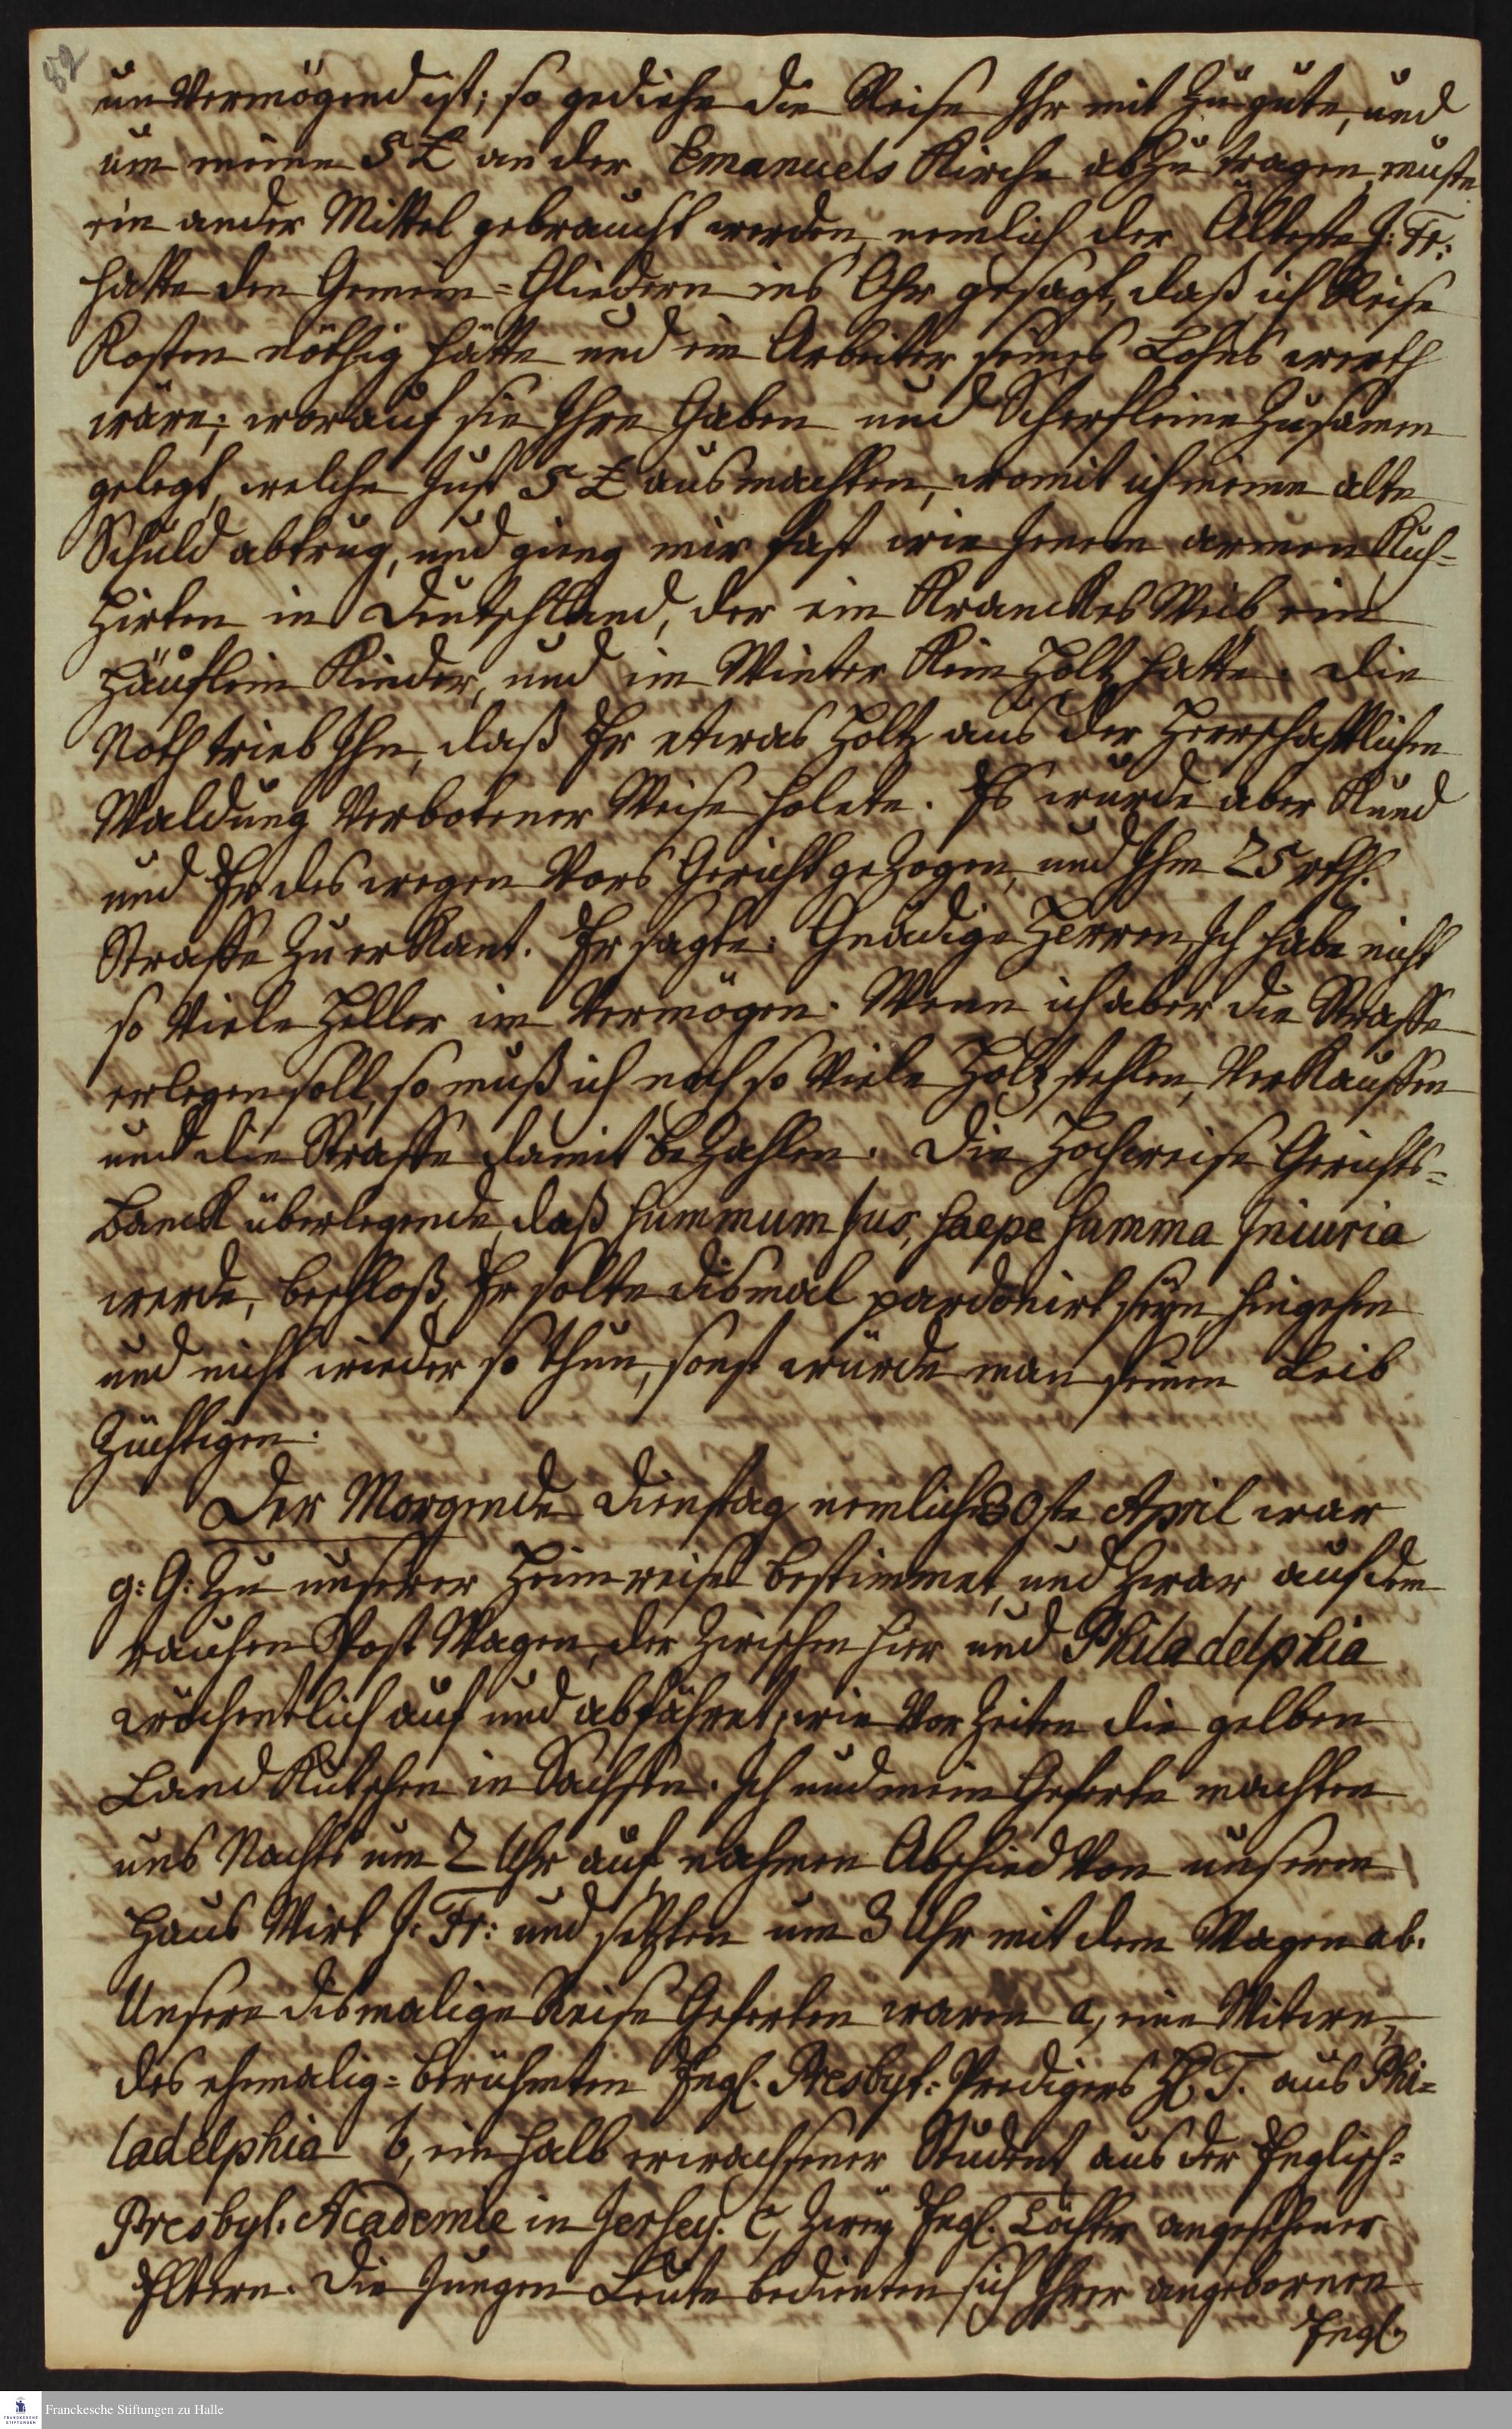 82
unvermögend ist; so gediehe die Reise Ihr mit zu gute, und
um meine 5 £ an der Emanuels Kirche abzutragen, muste
ein ander Mittel gebraucht werden, nemlich der Älteste J: Fr:
hatte den Gemein=Gliedern ins Ohr gesagt, daß ich Reise
Kosten nöthig hätte und ein Arbeiter seines Lohns werth
wäre; worauf sie Ihre Gaben und Scherfleine zusamen
gelegt, welche just 5 £ ausmachten, womit ich meine alte
Schuld abtrug, und gieng mir fast wie jenem armen Kuh=
Hirten in Deutschland, der ein Kranckes Weib ein
Häuflein Kinder, und im Winter Kein Holtz hatte. Die
Noth trieb Ihn, daß Er etwas Holtz aus der Herrschafftlichen
Waldung Verbotener Weise holete. Es wurde aber Kund
und Er deswegen Vors Gericht gezogen, und Ihm 25 rth.
Straffe zuerkant. Er sagte: Gnädige Herren, Ich habe nicht
so Viele Heller im Vermögen. Wenn ich aber die Straffe
erlegen soll, so muß ich noch so Viele Holtz stehlen, Verkauffen
und die Straffe damit bezahlen. Die Hochweise Gerichts=
Banck überlegende, daß summum jus, saepe summa Iniuria
werde, beschloß, Er solte dismal pardonirt seyn, hingehen
und nicht wieder so thun, sonst würde man seinen Leib
Züchtigen.
Der Morgende Dienstag nemlich 30ste April war
g: G: zu unserer Heimreise bestimmet, und zwar auf dem
rauhen Post Wagen, der zwischen hier und Philadelphia
wöchentlich auf und abfähret, wie Vor Zeiten die gelben
Land Kutschen in Sachsen. Ich und mein Geferte machten
uns Nachts um 2 Uhr auf, nahmen Abschied Von unserem
Haus Wirt J: Fr: und setzten um 3 Uhr mit dem Wagen ab.
Unsere dismalige Reise Geferten waren a, eine Witwe,
des ehemalig=berühmten Engl. Presbyt: Predigers H T. aus Phi=
ladelphia b, ein halb erwachsener Student aus der Englisch=
Presbyt. Academie in Jersey. C, zwey Engl. Töchter angesehener
Eltern. Die Jungen Leute bedienten sich Ihrer angebornen
Engl.
Franckesche Stiftungen zu Halle
FRANCKESCHE
STIFTUNGEN